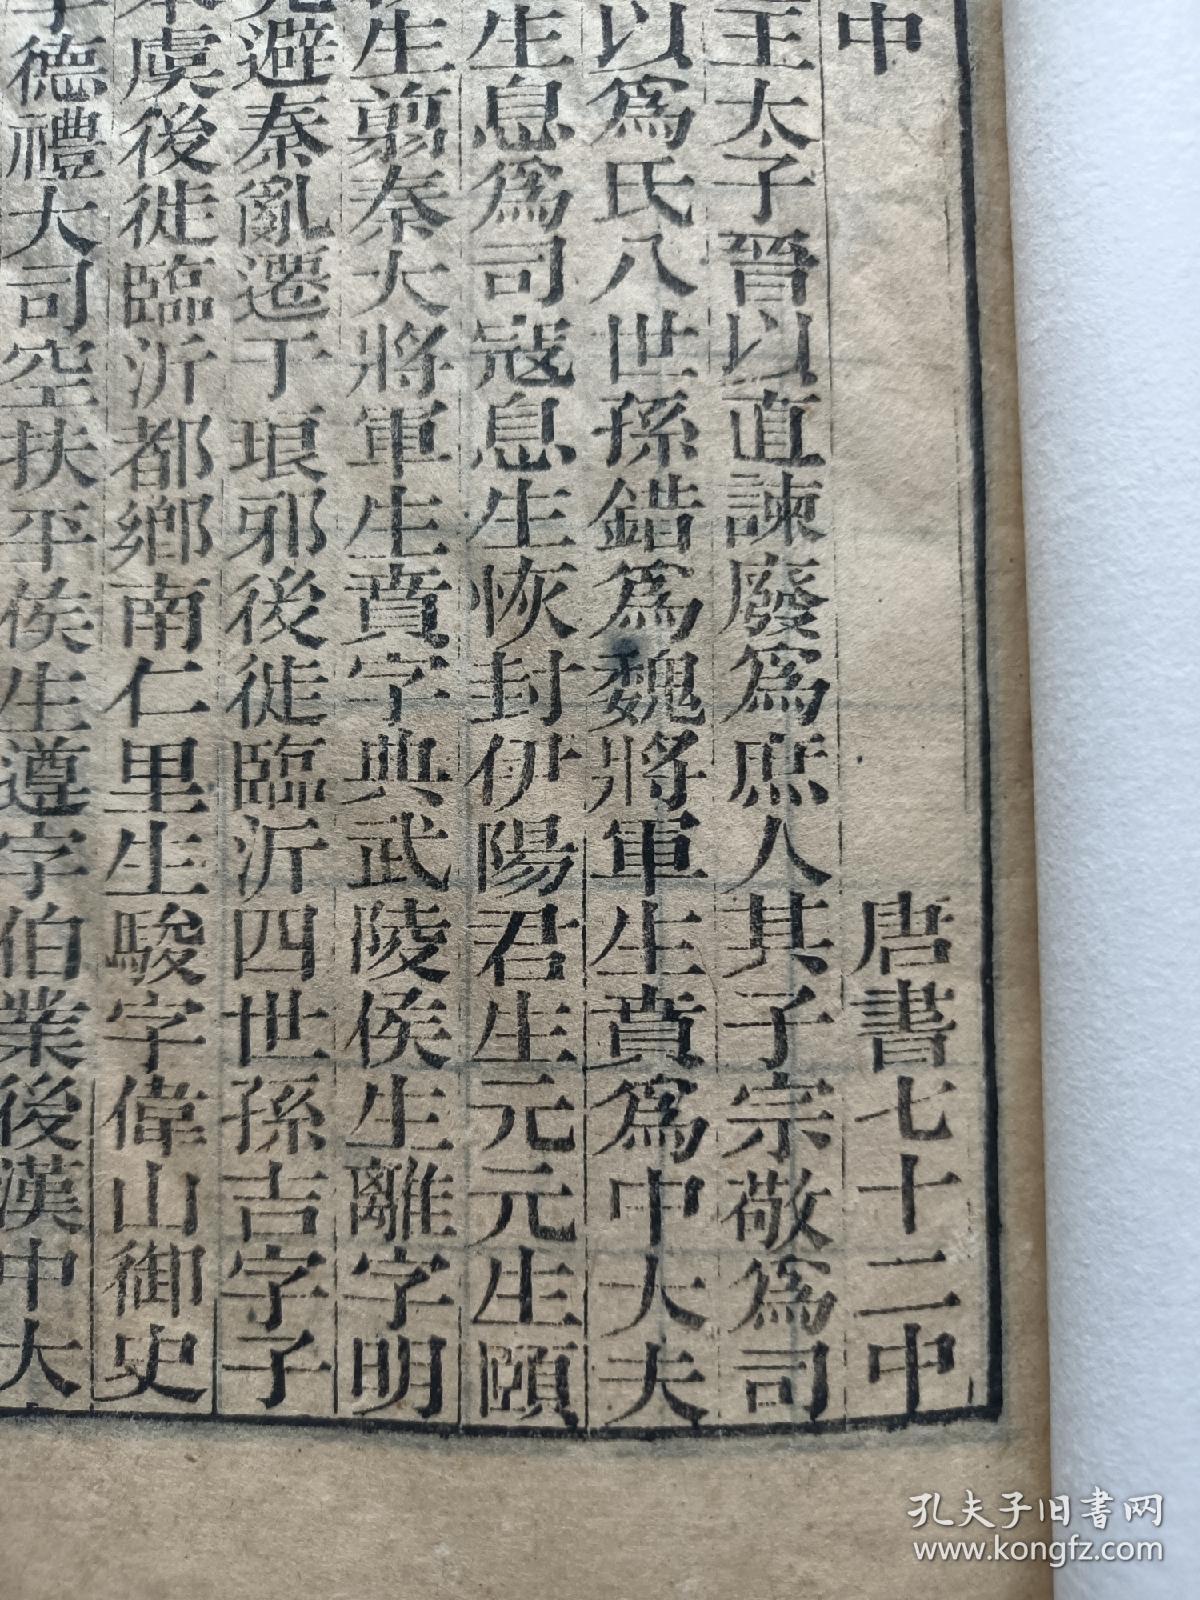 中 唐書七十二中
王太子晉以直諫廢爲庶人其子宗敬爲司
以爲氏八世孫錯爲魏將軍生賁爲中大夫
生息爲司寇息生恢封伊陽君生元元生頤
生翦秦大將軍生賁字典武陵侯生離字明
避秦亂遷于琅邪後徙臨沂四世孫吉字子
虞後徙臨沂都鄉南仁里生駿字偉山御史
德禮大司空扶平侯生遵字伯業後漢中大
孔夫子旧书网
www.kongfz.com